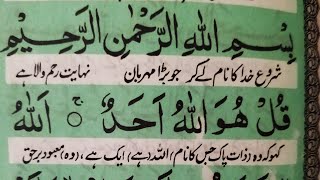 بِسْمِ اللهِ الرَّحْمٰنِ الرَّحِيْمِ
شروع خدا کا نام لے کر جو بڑا مہربان نہایت رحم والا ہے
قُلْ هُوَ اللهُ اَحَدٌ ۝ اَللهُ
کہو کہ وہ (ذات پاک جس کا نام) اللہ (ہے) ایک ہے، (وہ) معبود برحق